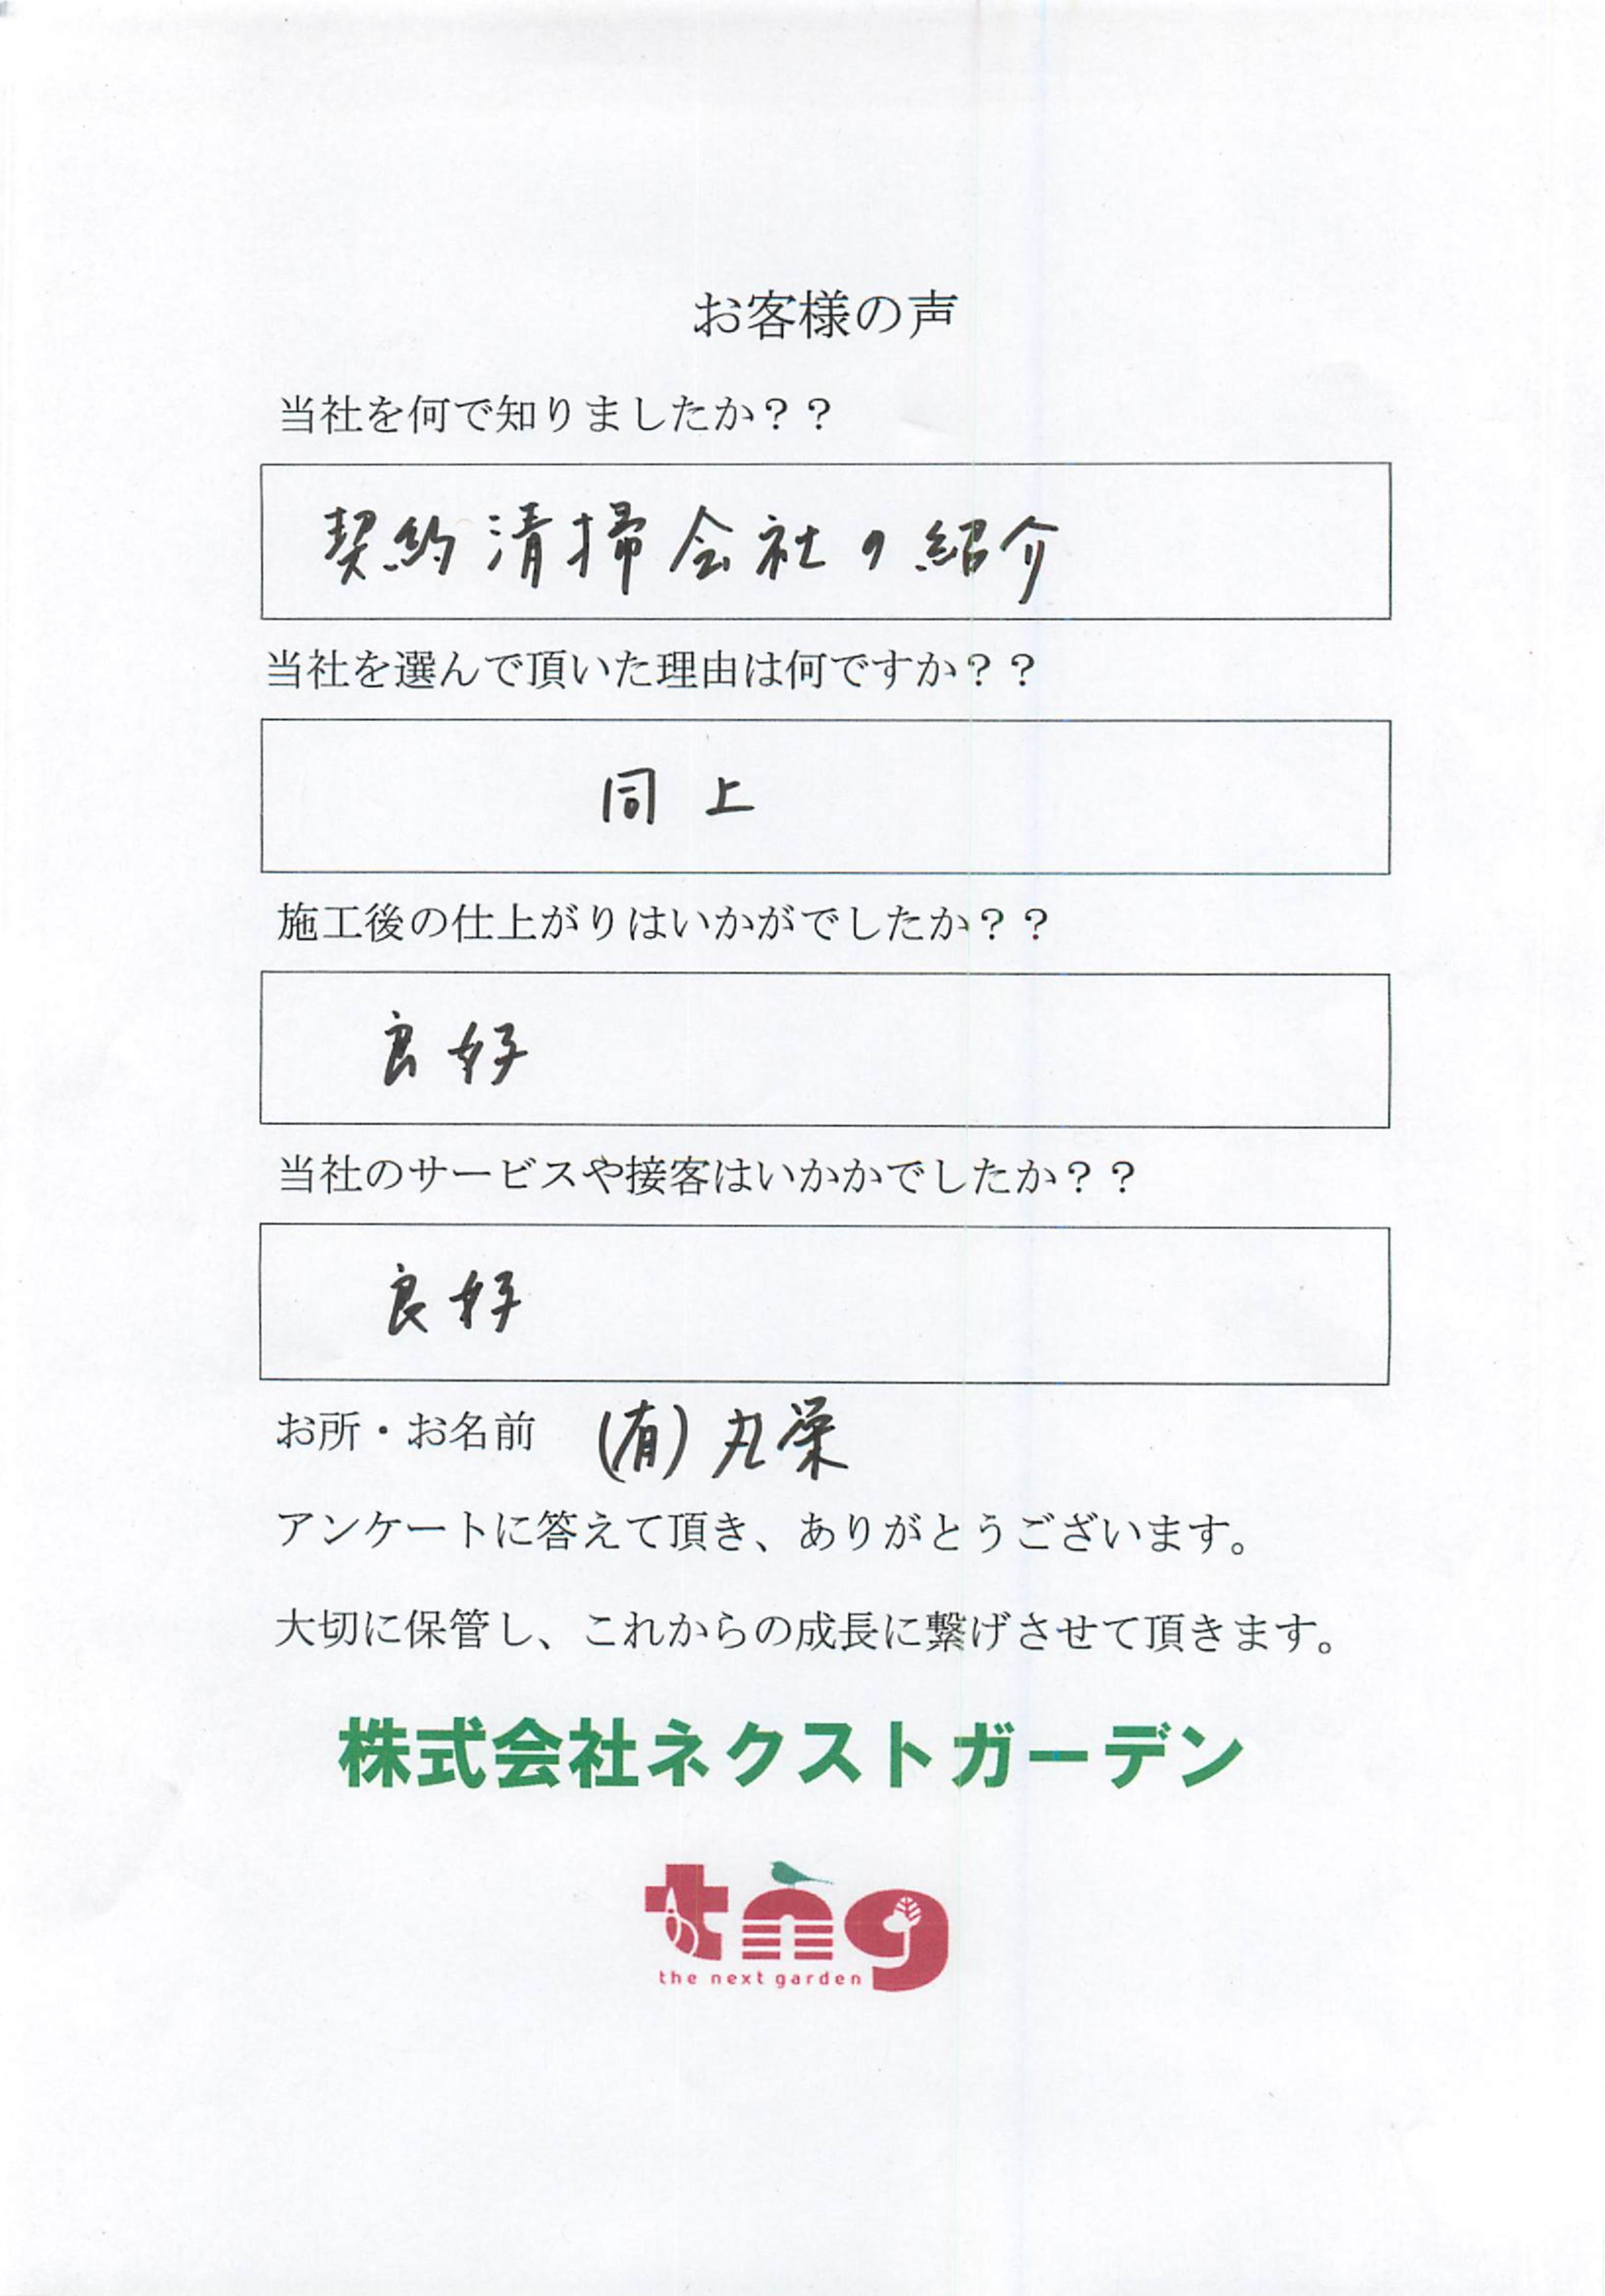 お客様の声
当社を何で知りましたか？？
契約清掃会社の紹介
当社を選んで頂いた理由は何ですか？？
同上
施工後の仕上がりはいかがでしたか？？
良好
当社のサービスや接客はいかかでしたか？？
良好
お所・お名前 (有)丸栄
アンケートに答えて頂き、ありがとうございます。
大切に保管し、これからの成長に繋げさせて頂きます。
株式会社ネクストガーデン
tng
the next garden